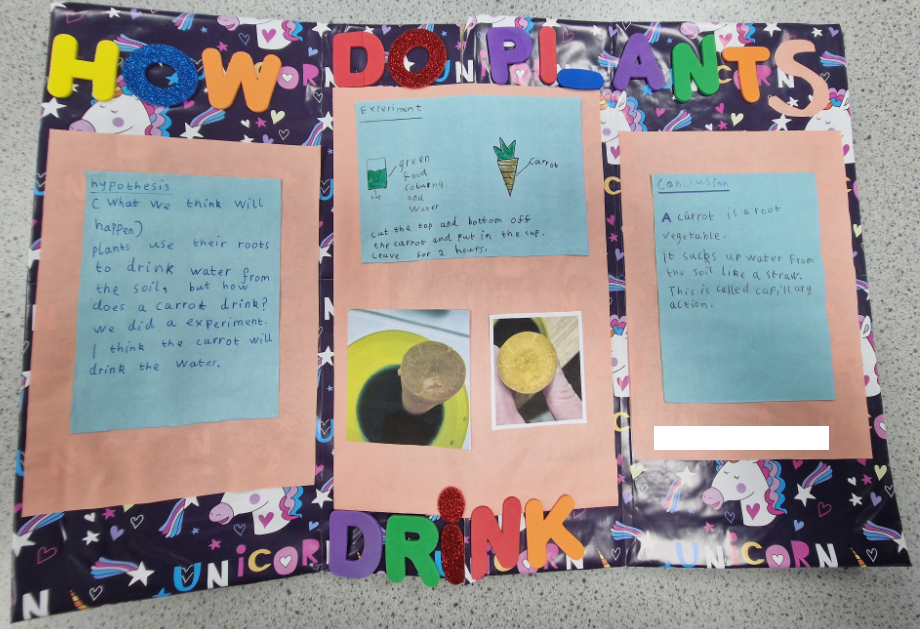 HOW DO PLANTS
hypothesis
(What we think will
happen)
plants use their roots
to drink water from
the soil, but how
does a carrot drink?
we did a experiment.
I think the carrot will
drink the water.
Experiment
green
food
colouring
and
water
cup
carrot
cut the top and bottom off
the carrot and put in the cup.
Leave for 2 hours.
Conclusion
A carrot is a root
vegetable.
It sucks up water from
the soil like a straw.
This is called capillary
action.
DRiNK
UNiCORN
UNiCORN
UNiCORN